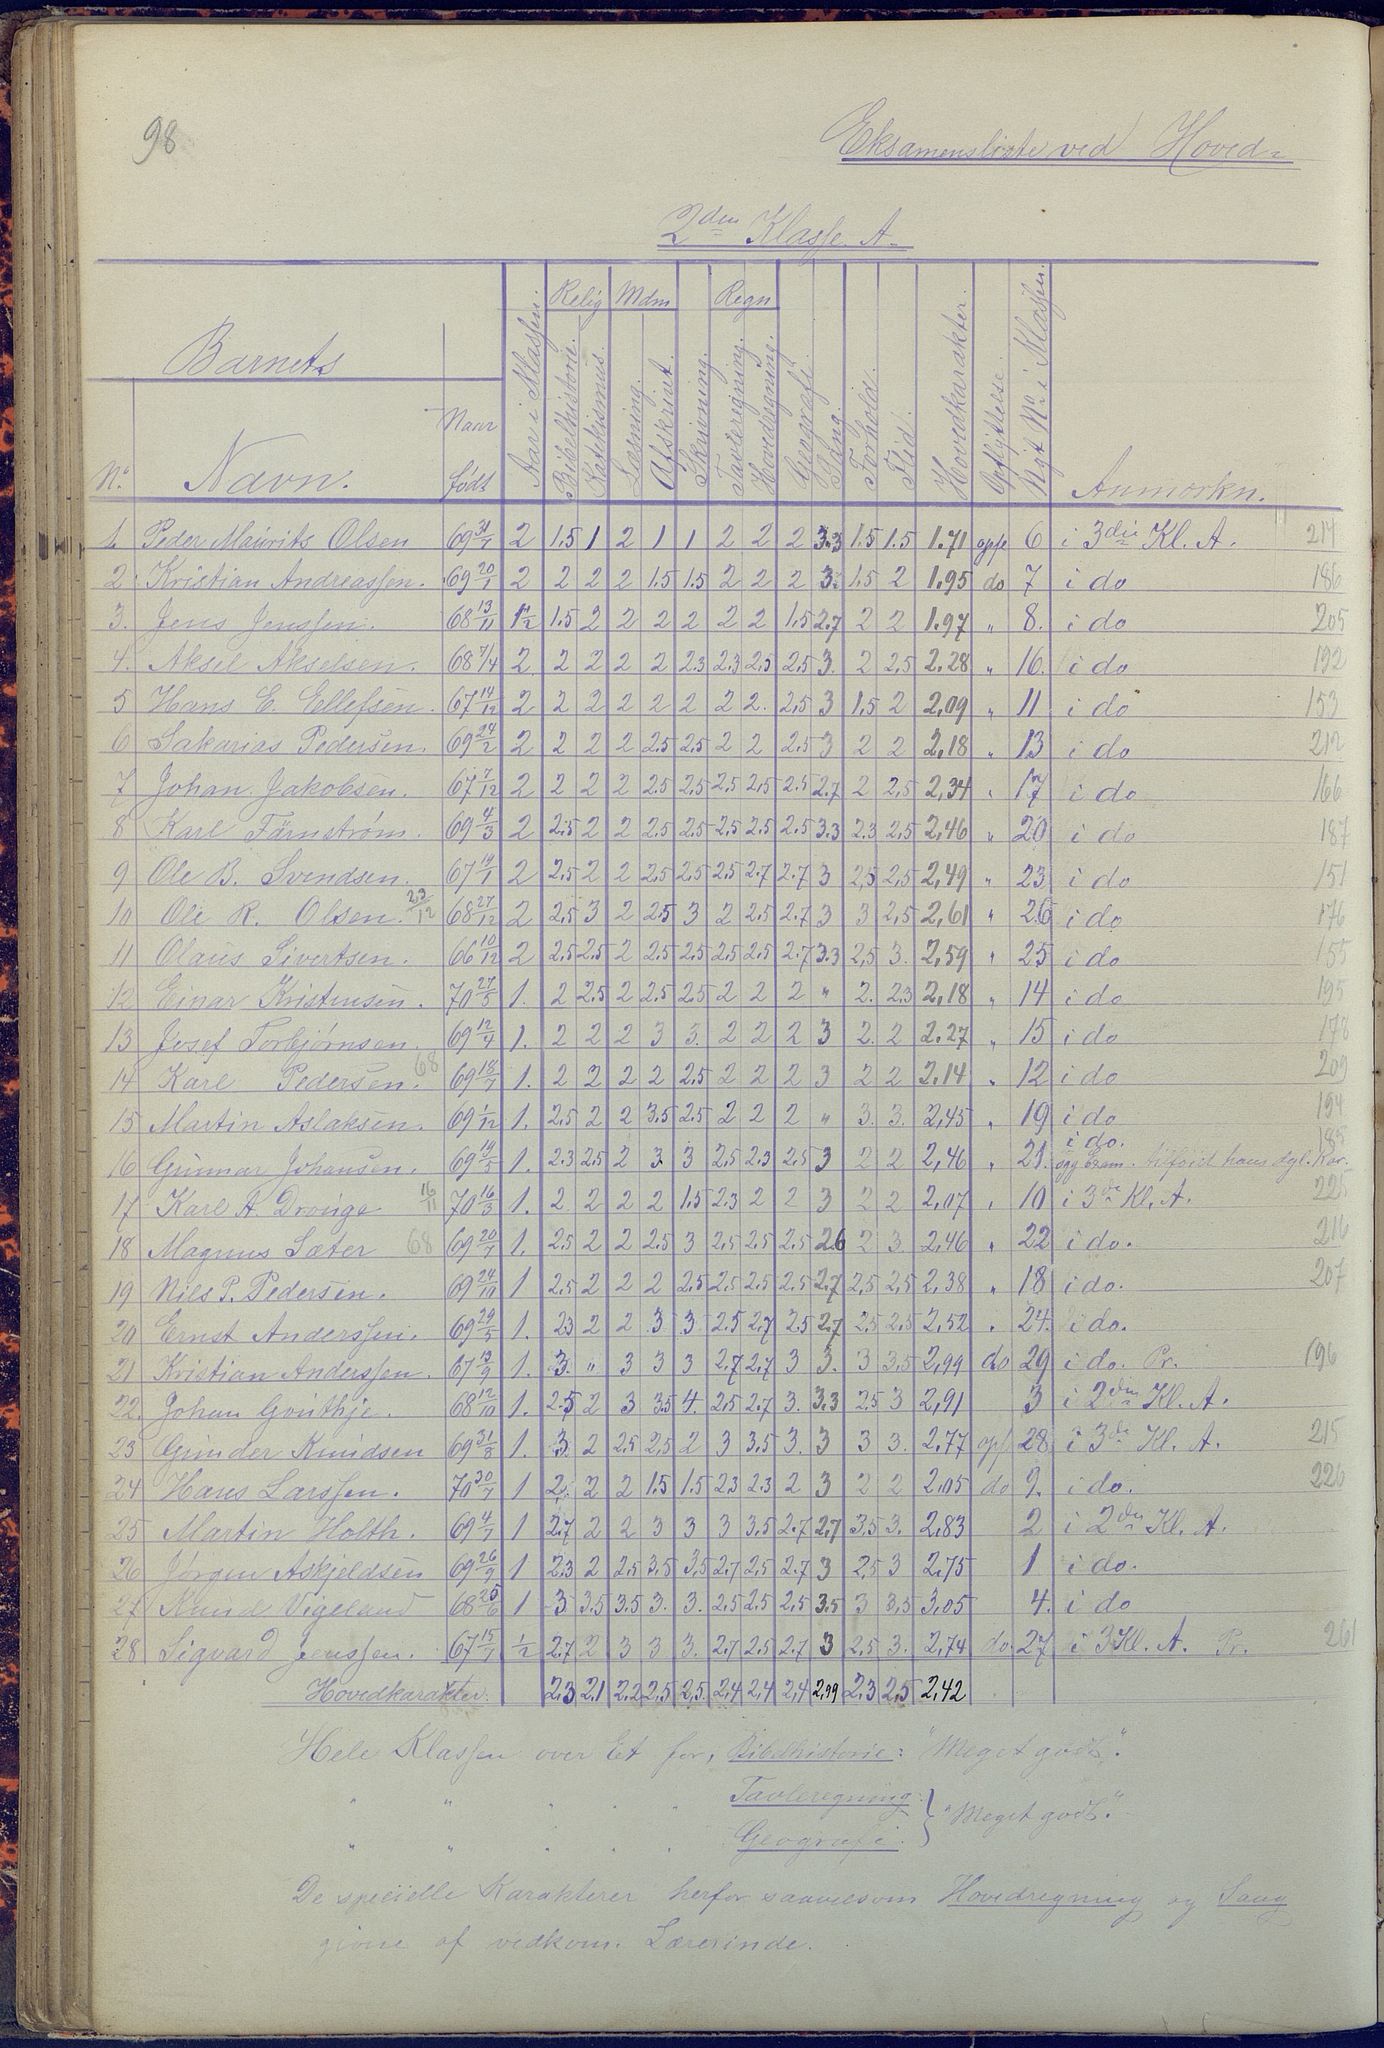 98
Eksamensliste ved Hoved-
2den Klasse A.
Barnets
N.
Navn.
Naar født
Aar i Klassen.
Relig
Bibelhistorie.
Katekismus.
Mdm
Læsning.
Afskrivet.
Skrivning.
Regn
Tavleregning.
Hovedregning.
Geografi.
Sang.
Forhold.
Flid.
Hovedkarakter.
Opflyttelse.
Nyt No. i Klassen.
Anmærkn.
1. Peder Mauritz Olsen 69 31/7 2 1.5 1 2 1 1 2 2 2 3.3 1.5 1.5 1.71 opfl 6 i 3die Kl. A. 217
2. Kristian Andreassen. 69 20/1 2 2 2 2 1.5 1.5 2 2 2 3. 1.5 2 1.95 do 7 i do 186
3. Jens Jenssen. 68 13/11 1 1/2 1.5 2 2 2 2 2 2 1.5 2.7 2 2 1.97 " 8. i do 205
4. Aksel Akselsen. 68 7/4 2. 2 2 2 2 2.3 2.3 2.5 2.5 3. 2 2.5 2.28 " 16. i do 192
5 Hans E. Ellefsen. 67 14/12 2 2 2 2 2 2 2 2. 2.5 3 1.5 2 2,09 " 11 i do 153
6 Sakarias Pedersen. 69 24/2 2 2 2 2 2.5 2.5 2 2 2.5 3 2 2 2,18 " 13 i do 212
7 Johan Jakobsen. 67 7/12 2 2 2 2 2.5 2.5 2.5 2.5 2.5 2.7 2 2.5 2,34 " 17 i do 166
8 Karl Färnström. 69 4/3 2 2.5 2 2 2.5 2.5 2.5 2.5 2.5 3.3 2.3 2.5 2,46 " 20 i do 187
9 Ole B. Svendsen. 67 19/1 2 2.5 2 2 2.5 2.5 2.5 2.7 2.7 3 2,5 2,5 2,49 " 23 i do 151
10 Ole R. Olsen. 23/12 68 27/12 2 2.5 3 2 2.5 3 2 2.5 2.7 3 3 2,5 2,61 " 26 i do 176
11 Olaus Sivertsen. 66 10/12 2 2.5 2.5 2 2.5 2.5 2.5 2.5 2.7 3.3 2,5 3. 2,59 " 25 i do 155
12 Einar Kristensen. 70 27/5 1. 2 2.5 2 2.5 2.5 2 2 2 " 2. 2.3 2,18 " 14 i do 195
13 Josef Torbjørnsen. 69 12/4 1. 2 2 2 3 3. 2 2 2 3 2. 2 2.27 " 15 i do 178
14 Karl Pedersen. 68 69 18/7 1. 2 2 2 2 2.5 2 2 2 3 2 2 2.14 " 12 i do 209
15 Martin Aslaksen. 69 1/12 1. 2.5 2 2 3.5 2.5 2 2 2 " 3. 3. 2,45 " 19 i do 194
16 Gunnar Johansen. 69 19/5 1. 2.3 2.5 2 3 3 2.5 2.3 2.5 3 2 2 2,46 " 21. i do.
17 Karl A. Drange 16/11 70 16/3 1. 2 2 2 2 1.5 2.3 2 2 3 2 2 2,07 " 10 i 3de Kl. A. 225
18 Magnus Sæter 68 69 20/7 1. 2.5 2 2 2.5 3 2.5 2.5 2.5 2.6 2 3. 2,46 " 22 i do. 216
19 Nils P. Pedersen. 69 24/10 1 2.5 2 2 2 2.5 2.5 2.5 2.5 2.7 2,5 2,5 2,38 " 18 i do. 207
20 Ernst Anderssen. 69 29/5 1. 2.3 2 2 3 3. 2.5 2.7 2.5 2.7 2.5 2.5 2,52 " 24. i do.
21 Kristian Anderssen. 67 13/9 1. 3. " 3 3 3 2.7 2.7 3 3. 3 3,5 2,99 do 29 i do. Pr. 196
22. Johan Gouthje. 68 12/10 1. 2.5 2 3 3.5 4. 2.5 2.7 3. 3.3 2.5 3 2,91 3 i 2den Kl. A.
23 Gunder Knudsen 69 31/8 1. 3. 2 2.5 2,5 2 3 3.5 3. 3 3 3. 2,77 opf 28 i 3de Kl. A. 215
24 Hans Larssen. 70 30/7 1 2. 2 2 1.5 1.5 2.3 2.3 2 3 2 2 2,05 do 9. i do. 226
25 Martin Holth. 69 4/7 1 2.7 2 2 3 3 3 3.5 2.7 2,7 3,5 3. 2,83 2 i 2den Kl. A.
26 Jørgen Askjeldsen 69 26/9 1 2.3 2 2.5 3.5 3,5 2.7 2.5 2.7 3 2,5 3 2,75 1 i do.
27 Knud Vigeland 68 25/6 1 3 3.5 3.5 3. 3. 2.5 2.5 2,5 3,5 3 3,5 3,05 4. i do
28 Sigvard Jenssen. 67 15/7 1/2 2.7 2 3 3 3. 2.7 2.5 2.7 3 2,5 3. 2,74 do. 27 i 3 Kl. A. Pr. 261
Hovedkarakter. 2,3 2,1 2,2 2,5 2,5. 2,4 2,4 2,4 2,99 2,3 2,5 2,42
Hele Klassen over Et for, Bibelhistorie: "Meget godt".
" " " " " Tavleregning
" " " " " Geografi. } "Meget godt".
De specielle Karakterer herfor saavelsom Hovedregning og Sang
givne af vedkom. Lærerinde.